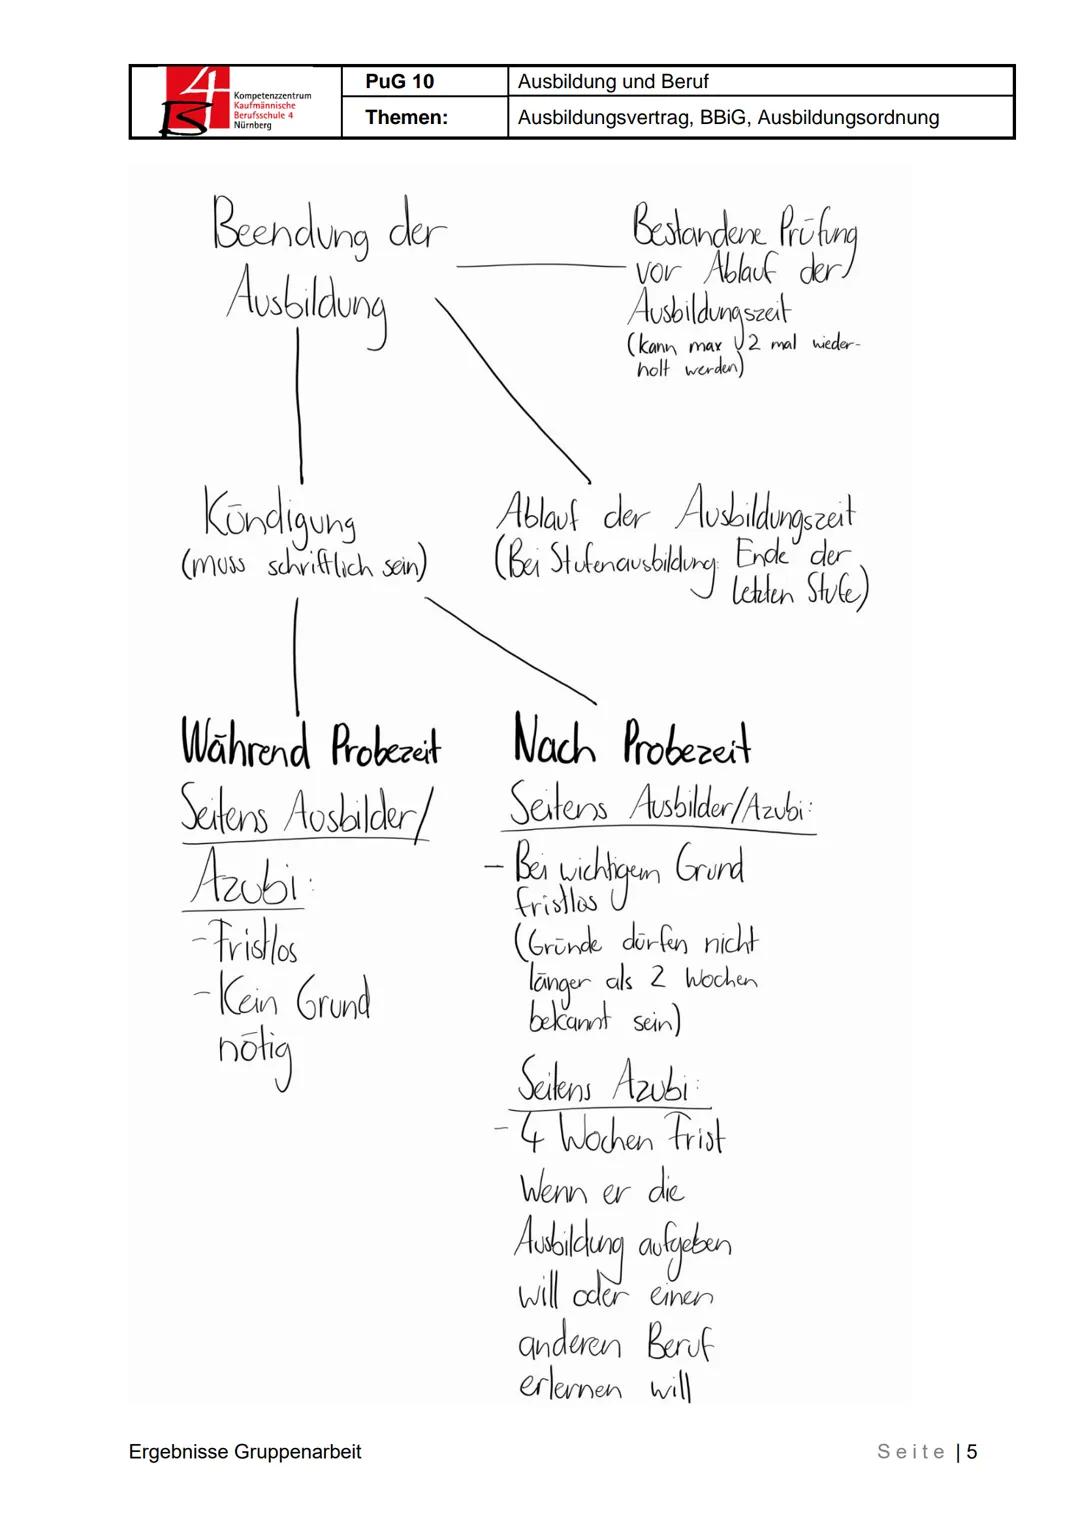 Kompetenzzentrum
Kaufmännische
Berufsschule 4
Nürnberg
PuG 10
Ausbildung und Beruf
Themen:
Ausbildungsvertrag, BBiG, Ausbildungsordnung
Beendung der
Ausbildung
Bestandene Prüfung
vor Ablauf der
Ausbildungszeit
(kann max 2 mal wieder-
holt werden)
Kündigung
(muss schriftlich sein)
Ablauf der Ausbildungszeit
(Bei Stufenausbildung: Ende der
letzten Stufe)
Während Probezeit
Seitens Ausbilder/
Azubi:
- Fristlos
- Kein Grund
nötig
Nach Probezeit
Seitens Ausbilder/Azubi:
- Bei wichtigem Grund
fristlos
(Gründe dürfen nicht
länger als 2 Wochen
bekannt sein)
Seitens Azubi:
- 4 Wochen Frist
Wenn er die
Ausbildung aufgeben
will oder einen
anderen Beruf
erlernen will
Ergebnisse Gruppenarbeit
Seite | 5